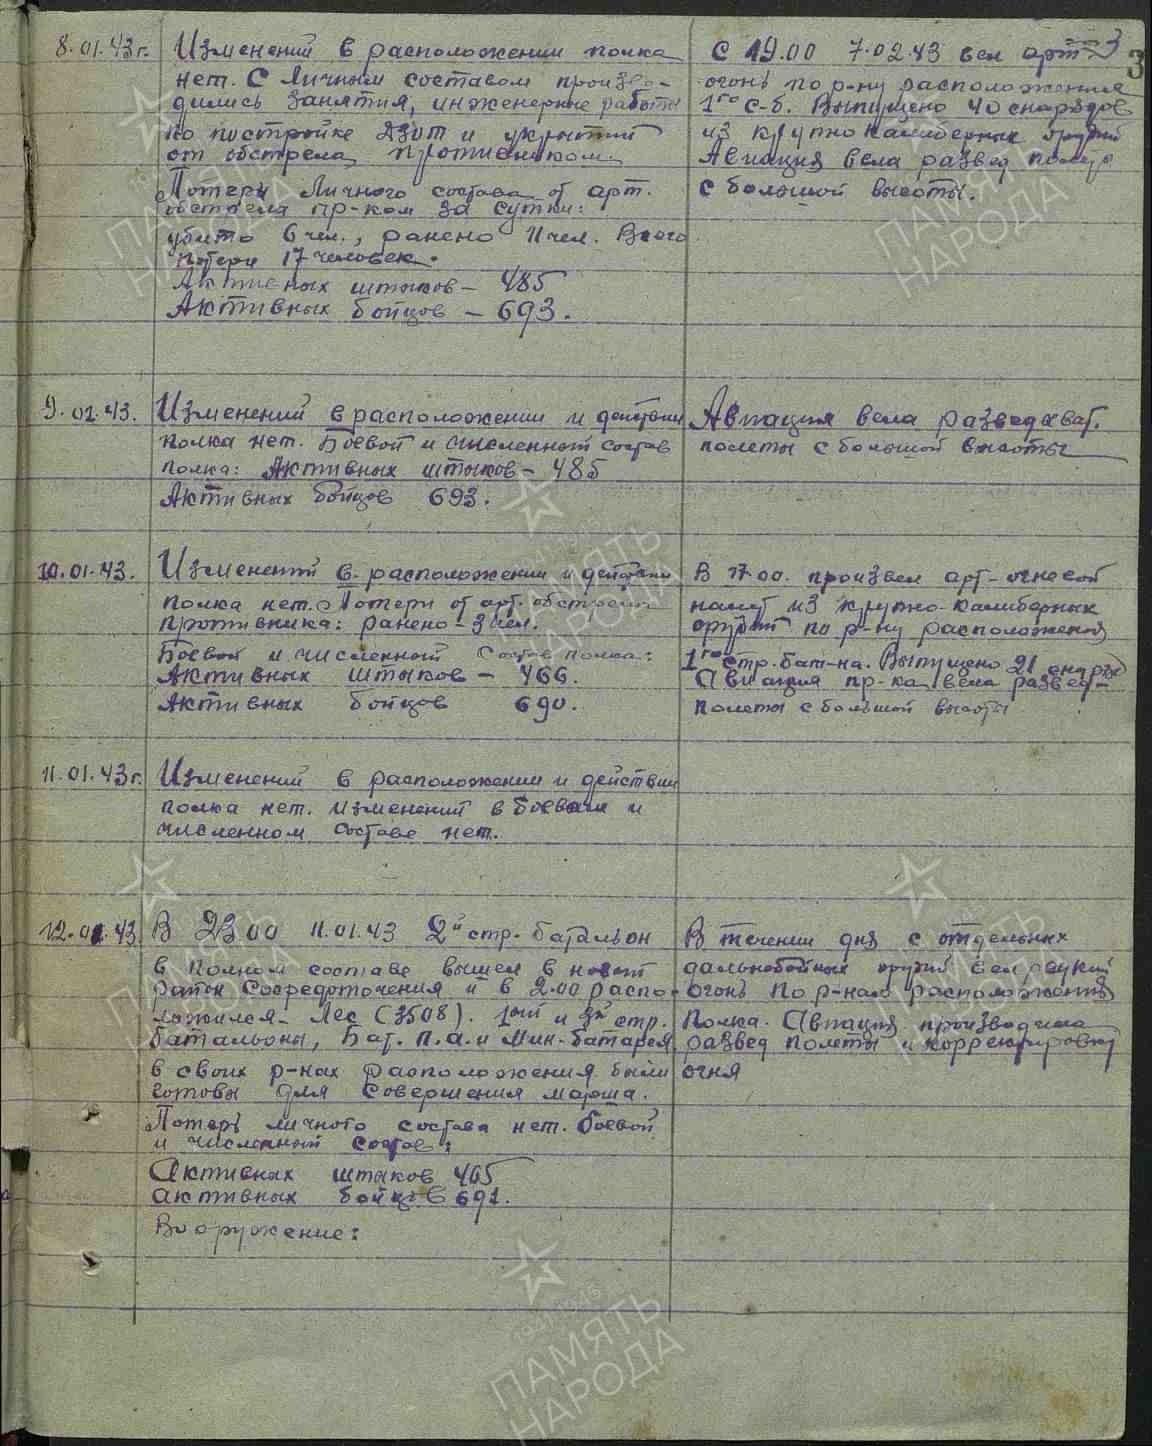 3
3
8.01.43г.
Изменений в расположении полка
нет. С личным составом произво-
дились занятия, инженерные работы
по постройке дзот и укрытий
от обстрела противником.
Потери личного состава от арт.
обстрела пр-ком за сутки:
убито 6 чел., ранено 11 чел. Всего
потери 17 человек.
Активных штыков – 485
Активных бойцов – 693.
С 19.00 7.02.43 вел арт-
огонь по р-ну расположения
1го с-б. Выпущено 40 снарядов
из крупно калиберных орудий
Авиация вела развед полеты
с большой высоты.
9.01.43.
Изменений в расположении и действии
полка нет. Боевой и численный состав
полка: Активных штыков – 485
Активных бойцов 693.
Авиация вела разведыват.
полеты с большой высоты
10.01.43.
Изменений в расположении и действии
полка нет. Потери от арт. обстрела
противника: ранено – 3 чел.
Боевой и численный состав полка:
Активных штыков – 466.
Активных бойцов 690.
В 17.00. произвел арт-огневой
налет из крупно-калиберных
орудий по р-ну расположения
1го стр. бат-на. Выпущено 21 снаряд
Авиация пр-ка вела развед-
полеты с большой высоты
11.01.43г.
Изменений в расположении и действии
полка нет. Изменений в боевом и
численном составе нет.
12.01.43.
В 23 00 11.01.43 2й стр. батальон
в полном составе вышел в новый
район сосредоточения и в 2.00 распо-
ложился – Лес (3508). 1ый и 3й стр.
батальоны, Бат. П.А. и Мин-батарея
в своих р-нах расположения были
готовы для совершения марша.
Потерь личного состава нет. Боевой
и численный состав:
Активных штыков 465
активных бойцов 691.
Вооружение:
В течении дня с отдельных
дальнобойных орудий вел редкий
огонь по р-нам расположения
Полка. Авиация производила
развед полеты и корректировку
огня
ПАМЯТЬ
НАРОДА
1941-1945